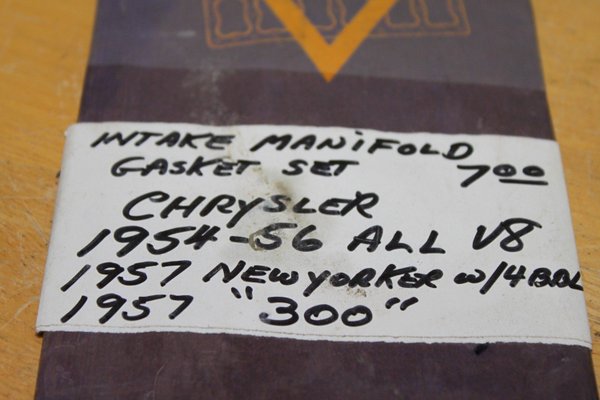 INTAKE MANIFOLD
GASKET SET 7.00
CHRYSLER
1954-56 ALL V8
1957 NEWYORKER W/4BBL
1957 "300"